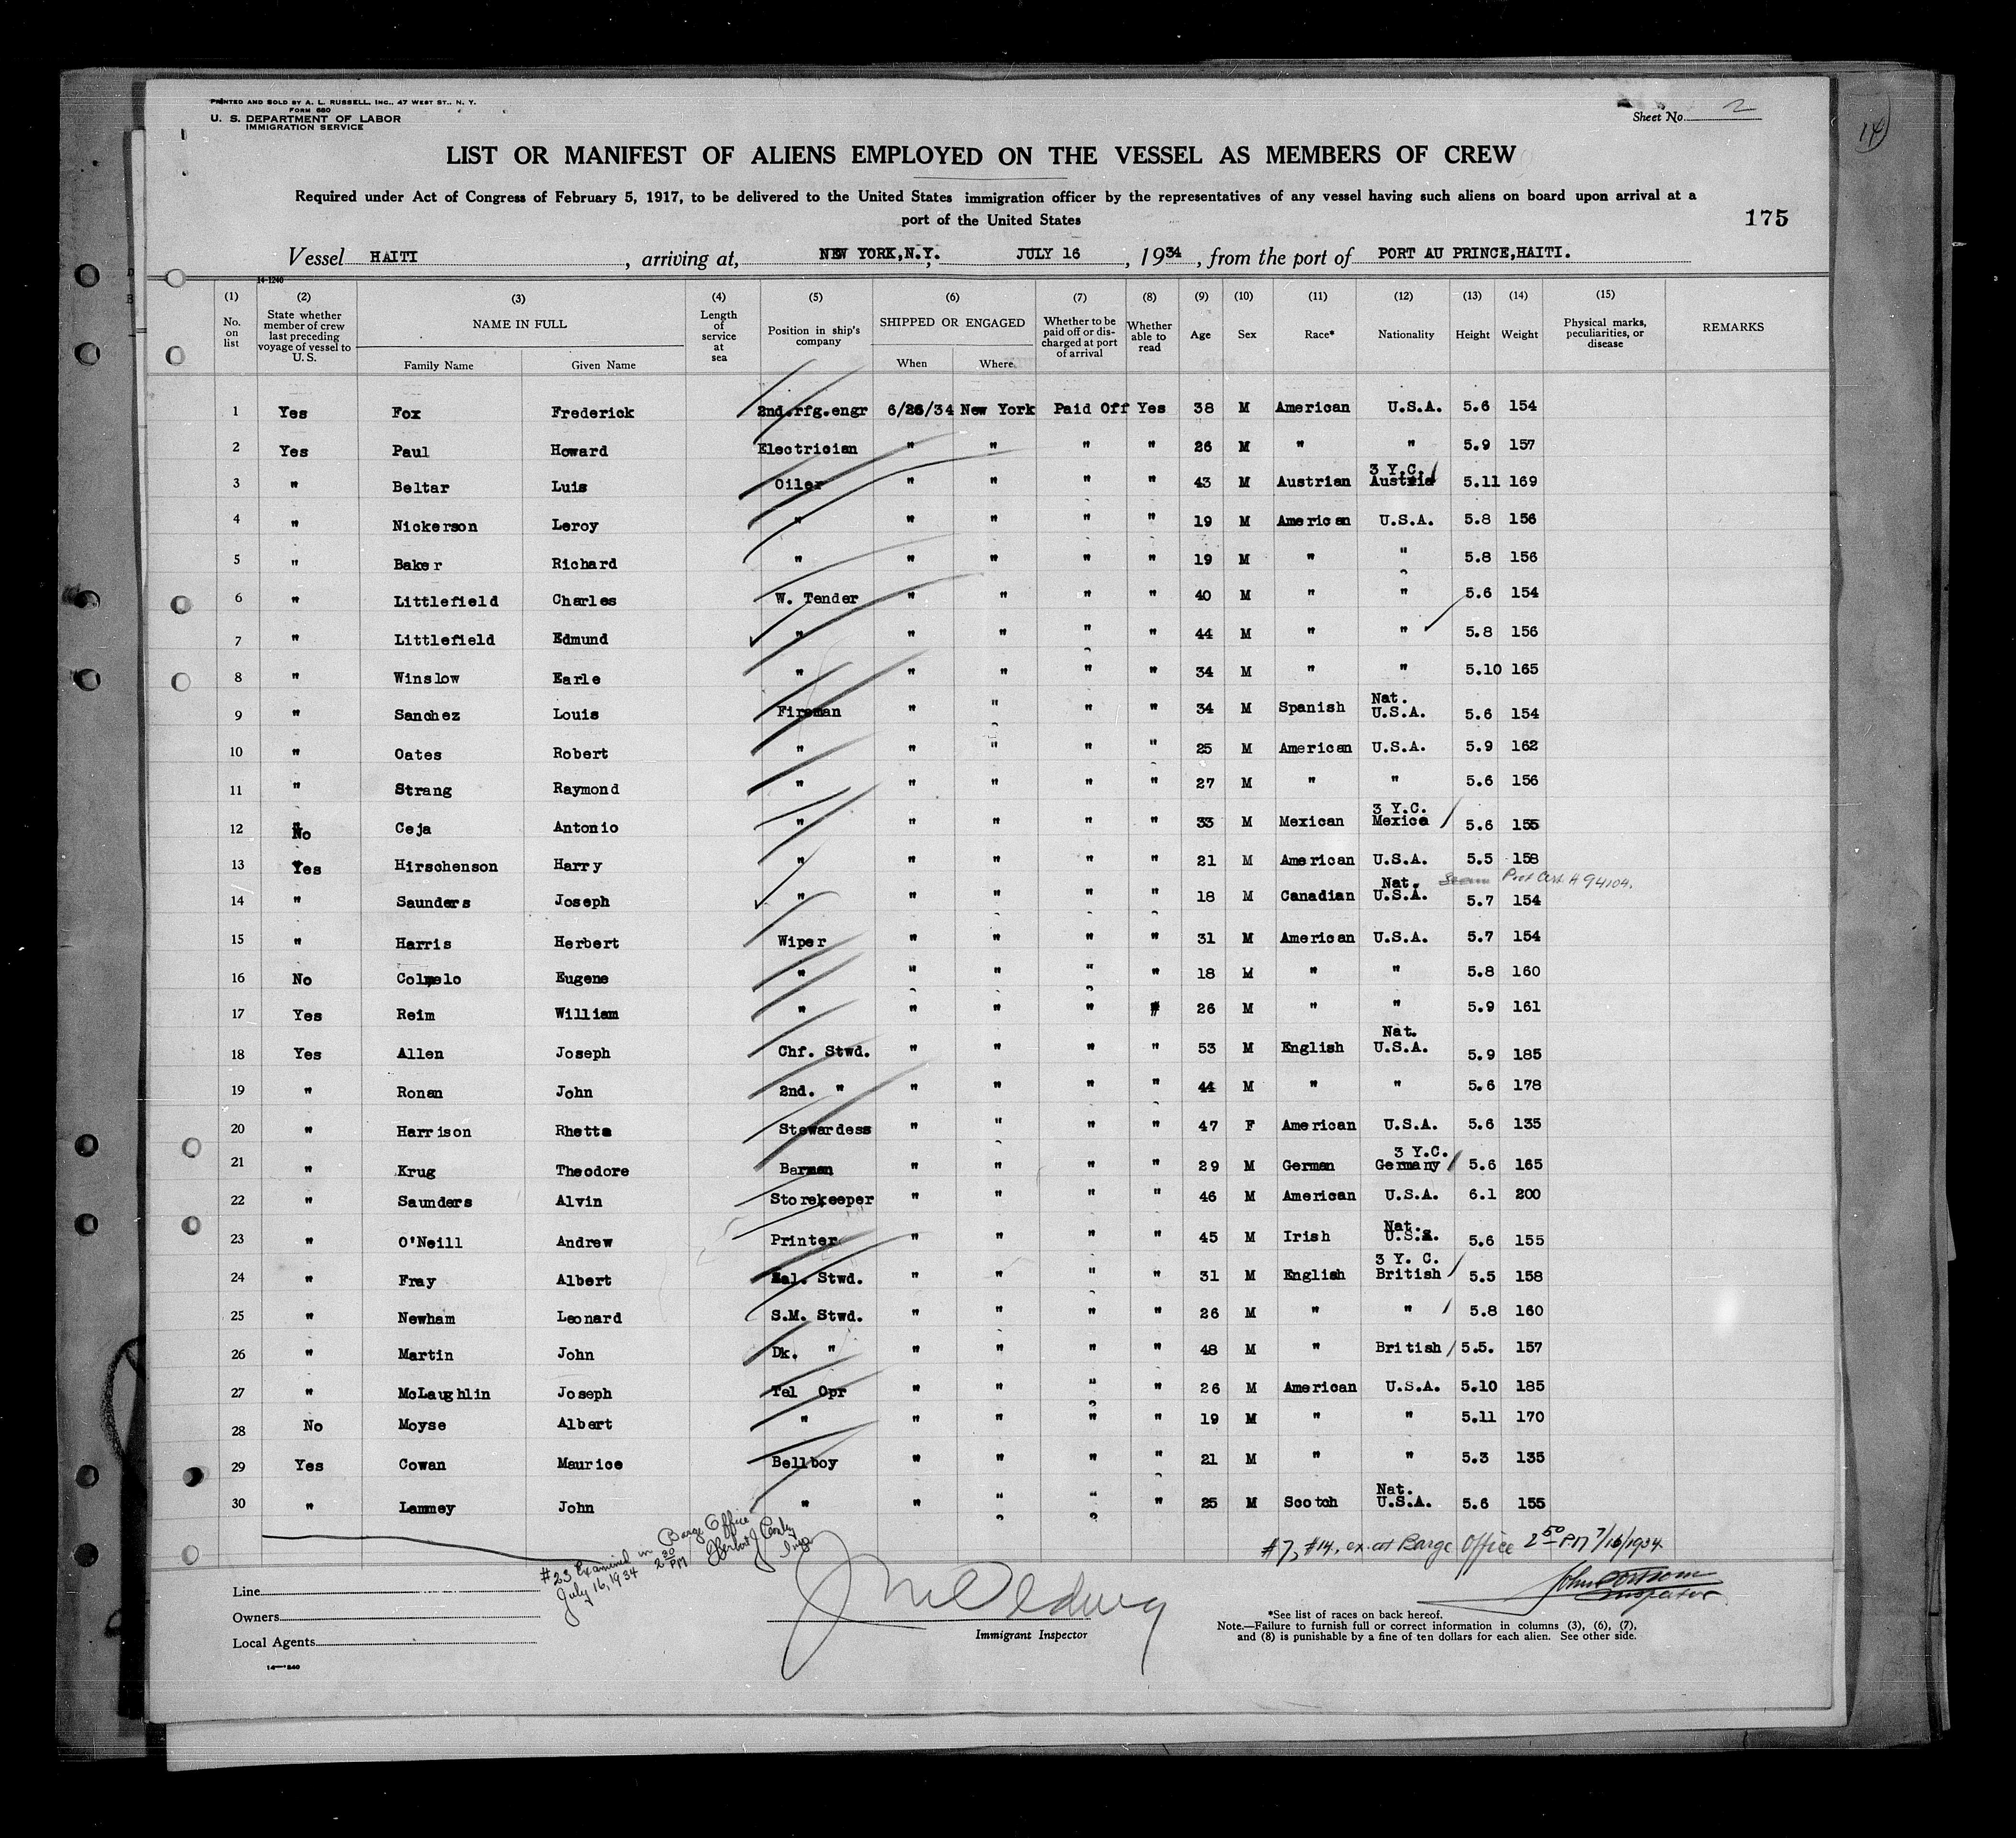 PRINTED AND SOLD BY A. L. RUSSELL, INC., 47 WEST ST., N. Y.
FORM 680
U. S. DEPARTMENT OF LABOR
IMMIGRATION SERVICE
Sheet No. 2
14
LIST OR MANIFEST OF ALIENS EMPLOYED ON THE VESSEL AS MEMBERS OF CREW
Required under Act of Congress of February 5, 1917, to be delivered to the United States immigration officer by the representatives of any vessel having such aliens on board upon arrival at a
port of the United States
175
Vessel HAITI, arriving at, NEW YORK,N.Y. JULY 16, 1934, from the port of PORT AU PRINCE,HAITI.
14-1240
(1) (2) (3) (4) (5) (6) (7) (8) (9) (10) (11) (12) (13) (14) (15)
No. on list | State whether member of crew last preceding voyage of vessel to U. S. | NAME IN FULL | Length of service at sea | Position in ship's company | SHIPPED OR ENGAGED | Whether to be paid off or discharged at port of arrival | Whether able to read | Age | Sex | Race* | Nationality | Height | Weight | Physical marks, peculiarities, or disease | REMARKS
Family Name | Given Name | When | Where
1 Yes Fox Frederick 2nd.rfg.engr 6/26/34 New York Paid Off Yes 38 M American U.S.A. 5.6 154
2 Yes Paul Howard Electrician " " " " 26 M " " 5.9 157
3 " Beltar Luis Oiler " " " " 43 M Austrian 3 Y.C. Austria 5.11 169
4 " Nickerson Leroy " " " " " 19 M American U.S.A. 5.8 156
5 " Baker Richard " " " " " 19 M " " 5.8 156
6 " Littlefield Charles W. Tender " " " " 40 M " " 5.6 154
7 " Littlefield Edmund " " " " " 44 M " " 5.8 156
8 " Winslow Earle " " " " " 34 M " " 5.10 165
9 " Sanchez Louis Fireman " " " " 34 M Spanish Nat. U.S.A. 5.6 154
10 " Oates Robert " " " " " 25 M American U.S.A. 5.9 162
11 " Strang Raymond " " " " " 27 M " " 5.6 156
12 No Ceja Antonio " " " " " 33 M Mexican 3 Y.C. Mexico 5.6 155
13 Yes Hirschenson Harry " " " " " 21 M American U.S.A. 5.5 158
14 " Saunders Joseph " " " " " 18 M Canadian Nat. U.S.A. 5.7 154 Prot Cert # 94104.
15 " Harris Herbert Wiper " " " " 31 M American U.S.A. 5.7 154
16 No Colmelo Eugene " " " " " 18 M " " 5.8 160
17 Yes Reim William " " " " " 26 M " " 5.9 161
18 Yes Allen Joseph Chf. Stwd. " " " " 53 M English Nat. U.S.A. 5.9 185
19 " Ronan John 2nd. " " " " " 44 M " " 5.6 178
20 " Harrison Rhetta Stewardess " " " " 47 F American U.S.A. 5.6 135
21 " Krug Theodore Barman " " " " 29 M German 3 Y.C. Germany 5.6 165
22 " Saunders Alvin Storekeeper " " " " 46 M American U.S.A. 6.1 200
23 " O'Neill Andrew Printer " " " " 45 M Irish Nat. U.S.A. 5.6 155
24 " Fray Albert Sal. Stwd. " " " " 31 M English 3 Y. C. British 5.5 158
25 " Newham Leonard S.M. Stwd. " " " " 26 M " " 5.8 160
26 " Martin John Dk. " " " " " 48 M " British 5.5. 157
27 " McLaughlin Joseph Tel Opr " " " " 26 M American U.S.A. 5.10 185
28 No Moyse Albert " " " " " 19 M " " 5.11 170
29 Yes Cowan Maurice Bellboy " " " " 21 M " " 5.3 135
30 " Lammey John " " " " " 25 M Scotch Nat. U.S.A. 5.6 155
#23 Examined in Barge Office
July 16, 1934 2 30 PM
#7, #14, ex. at Barge Office 2 50 PM 7/16/1934
Inspector
Line
Owners
Local Agents
Immigrant Inspector
*See list of races on back hereof.
Note.—Failure to furnish full or correct information in columns (3), (6), (7),
and (8) is punishable by a fine of ten dollars for each alien. See other side.